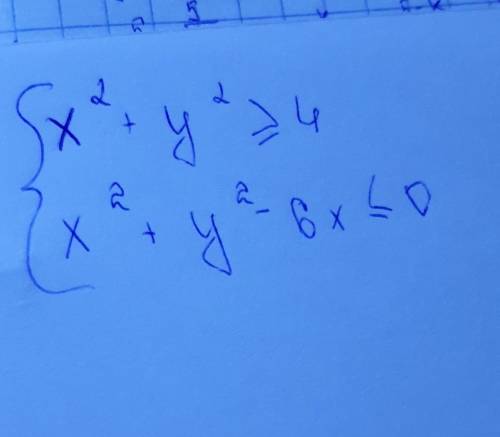 x² + y² ⩾ 4
x² + y² - 6x ≤ 0